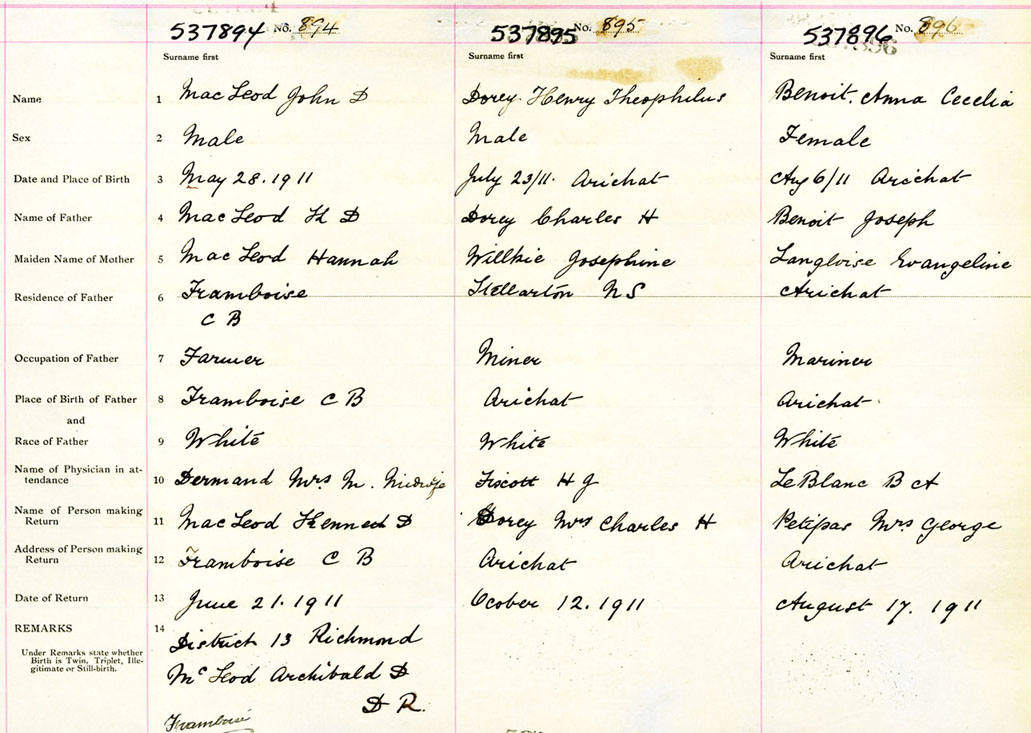 537894 No. 894 537895 No. 895 537896 No. 896
Surname first Surname first Surname first
Name 1 MacLeod John D Dorey Henry Theophilus Benoit, Anna Cecelia
Sex 2 Male Male Female
Date and Place of Birth 3 May 28.1911 July 23/11. Arichat Aug 6/11 Arichat
Name of Father 4 MacLeod K D Dorey Charles H Benoit Joseph
Maiden Name of Mother 5 MacLeod Hannah Willkie Josephine Langloise Evangeline
Residence of Father 6 Framboise Stellarton N S Arichat
C B
Occupation of Father 7 Farmer Miner Mariner
Place of Birth of Father 8 Framboise C B Arichat Arichat
and
Race of Father 9 White White White
Name of Physician in at-
tendance 10 Dermand Mrs M. Midwife H G LeBlanc B A
Name of Person making
Return 11 MacLeod Kenneth D Dorey Mrs Charles H Petipas Mrs George
Address of Person making
Return 12 Framboise C B Arichat Arichat
Date of Return 13 June 21.1911 Ocober 12.1911 August 17.1911
REMARKS 14 District 13 Richmond
Under Remarks state whether
Birth is Twin, Triplet, Ille-
gitimate or Still-birth.
McLeod Archibald D
D R.
Framboise